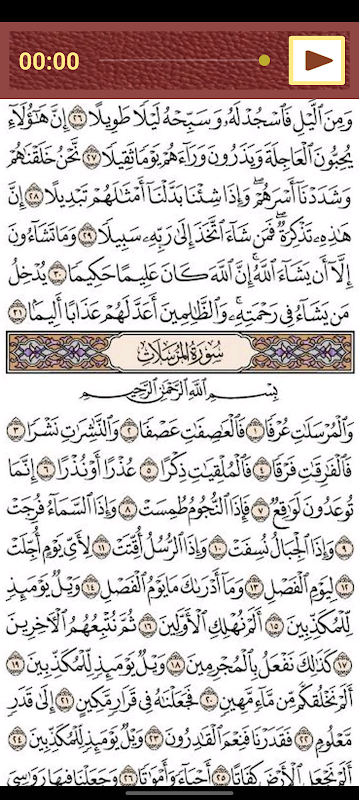 00:00
وَمِنَ ٱلَّيۡلِ فَٱسۡجُدۡ لَهُۥ وَسَبِّحۡهُ لَيۡلٗا طَوِيلًا ٢٦ إِنَّ هَٰٓؤُلَآءِ
يُحِبُّونَ ٱلۡعَاجِلَةَ وَيَذَرُونَ وَرَآءَهُمۡ يَوۡمٗا ثَقِيلٗا ٢٧ نَّحۡنُ خَلَقۡنَٰهُمۡ
وَشَدَدۡنَآ أَسۡرَهُمۡۖ وَإِذَا شِئۡنَا بَدَّلۡنَآ أَمۡثَٰلَهُمۡ تَبۡدِيلًا ٢٨ إِنَّ
هَٰذِهِۦ تَذۡكِرَةٞۖ فَمَن شَآءَ ٱتَّخَذَ إِلَىٰ رَبِّهِۦ سَبِيلٗا ٢٩ وَمَا تَشَآءُونَ
إِلَّآ أَن يَشَآءَ ٱللَّهُۚ إِنَّ ٱللَّهَ كَانَ عَلِيمًا حَكِيمٗا ٣٠ يُدۡخِلُ
مَن يَشَآءُ فِي رَحۡمَتِهِۦۚ وَٱلظَّٰلِمِينَ أَعَدَّ لَهُمۡ عَذَابًا أَلِيمَۢا ٣١
سُورَةُ المُرۡسَلَات
بِسۡمِ ٱللَّهِ ٱلرَّحۡمَٰنِ ٱلرَّحِيمِ
وَٱلۡمُرۡسَلَٰتِ عُرۡفٗا ١ فَٱلۡعَٰصِفَٰتِ عَصۡفٗا ٢ وَٱلنَّٰشِرَٰتِ نَشۡرٗا ٣
فَٱلۡفَٰرِقَٰتِ فَرۡقٗا ٤ فَٱلۡمُلۡقِيَٰتِ ذِكۡرًا ٥ عُذۡرًا أَوۡ نُذۡرًا ٦ إِنَّمَا
تُوعَدُونَ لَوَٰقِعٞ ٧ فَإِذَا ٱلنُّجُومُ طُمِسَتۡ ٨ وَإِذَا ٱلسَّمَآءُ فُرِجَتۡ
٩ وَإِذَا ٱلۡجِبَالُ نُسِفَتۡ ١٠ وَإِذَا ٱلرُّسُلُ أُقِّتَتۡ ١١ لِأَيِّ يَوۡمٍ أُجِّلَتۡ
١٢ لِيَوۡمِ ٱلۡفَصۡلِ ١٣ وَمَآ أَدۡرَىٰكَ مَا يَوۡمُ ٱلۡفَصۡلِ ١٤ وَيۡلٞ يَوۡمَئِذٖ
لِّلۡمُكَذِّبِينَ ١٥ أَلَمۡ نُهۡلِكِ ٱلۡأَوَّلِينَ ١٦ ثُمَّ نُتۡبِعُهُمُ ٱلۡأٓخِرِينَ
١٧ كَذَٰلِكَ نَفۡعَلُ بِٱلۡمُجۡرِمِينَ ١٨ وَيۡلٞ يَوۡمَئِذٖ لِّلۡمُكَذِّبِينَ ١٩
أَلَمۡ نَخۡلُقكُّم مِّن مَّآءٖ مَّهِينٖ ٢٠ فَجَعَلۡنَٰهُ فِي قَرَارٖ مَّكِينٍ ٢١ إِلَىٰ قَدَرٖ
مَّعۡلُومٖ ٢٢ فَقَدَرۡنَا فَنِعۡمَ ٱلۡقَٰدِرُونَ ٢٣ وَيۡلٞ يَوۡمَئِذٖ لِّلۡمُكَذِّبِينَ ٢٤
أَلَمۡ نَجۡعَلِ ٱلۡأَرۡضَ كِفَاتًا ٢٥ أَحۡيَآءٗ وَأَمۡوَٰتٗا ٢٦ وَجَعَلۡنَا فِيهَا رَوَٰسِيَ